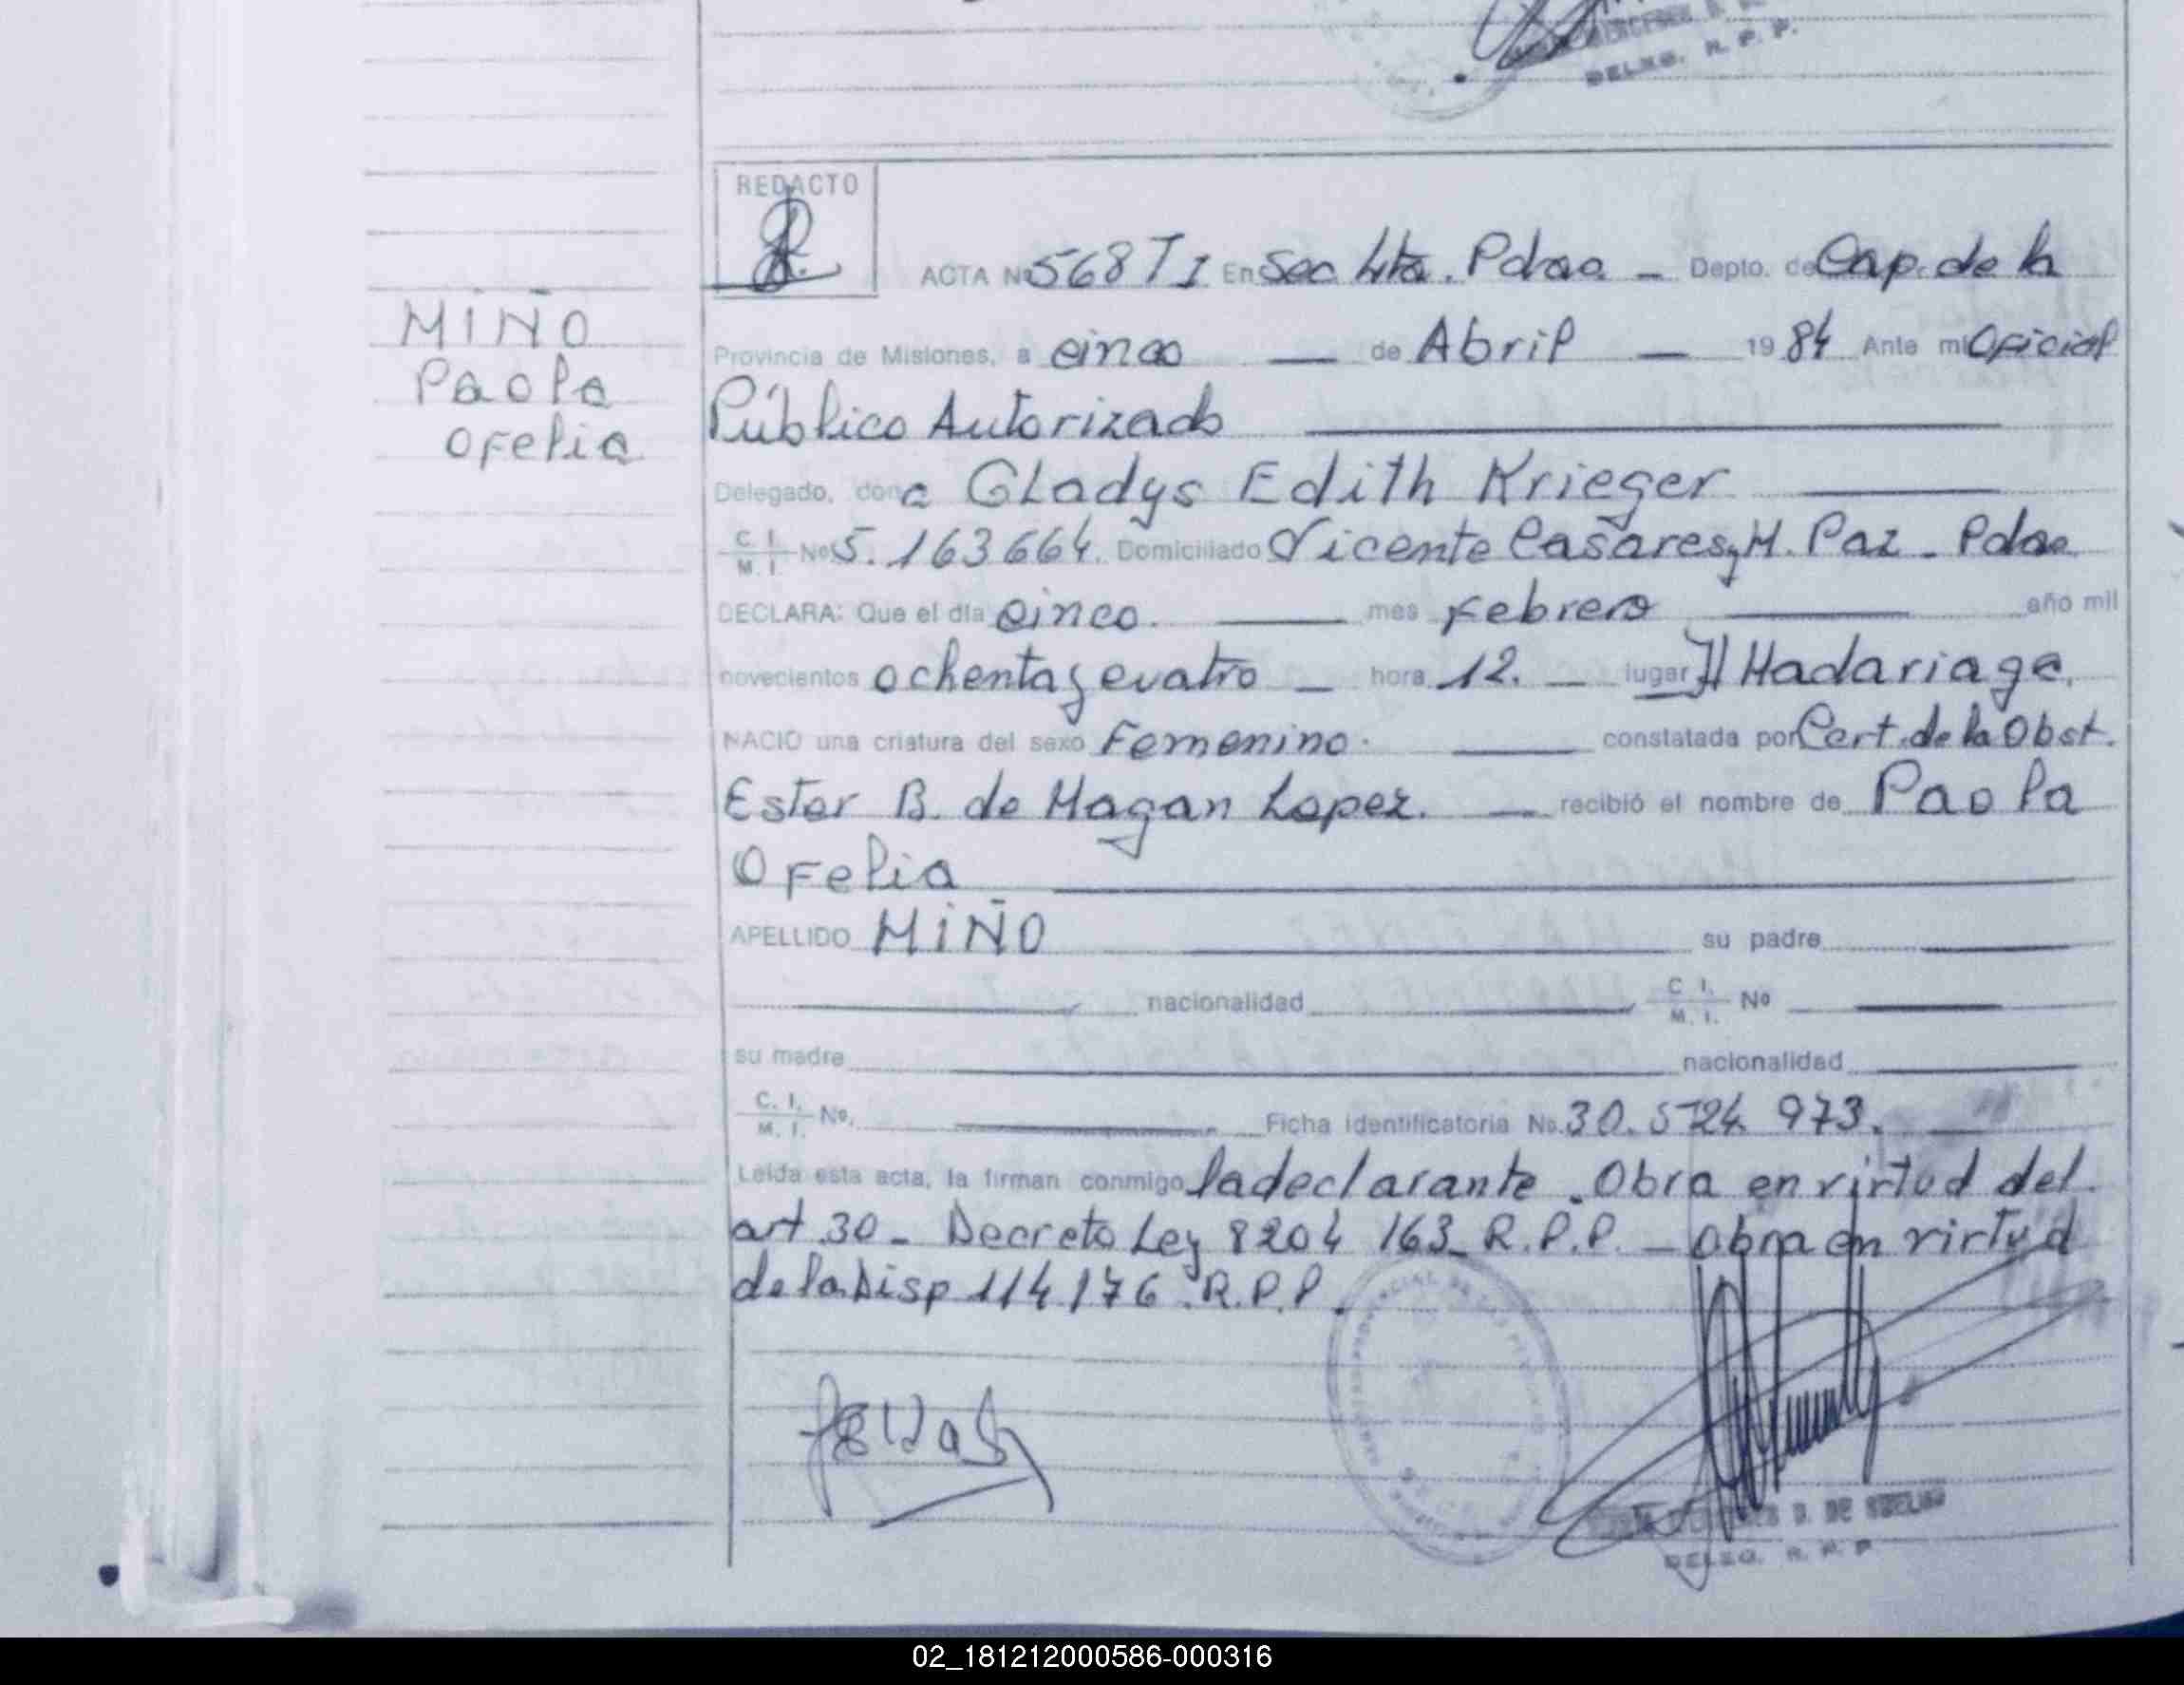 DELEG. R. P. P.
REDACTO
ACTA No 568 T I En Sec 4ta. Pdas. - Depto. de Cap. de la
MIÑO
Provincia de Misiones, a cinco — de Abril — 19 84 Ante mi Oficial
Paola
Público Autorizado
Ofelia
Delegado, don a Gladys Edith Krieger
C. I. M. I. No 5.163664. Domiciliado Vicente Casares y M. Paz - Pdas
DECLARA: Que el día cinco. — mes Febrero — año mil
novecientos ochenta y cuatro — hora 12. — lugar H Madariaga.
NACIO una criatura del sexo Femenino. — constatada por Cert. de la Obst.
Ester B. de Magan Lopez. — recibió el nombre de Paola
Ofelia
APELLIDO MIÑO su padre
nacionalidad C. I. M. I. No
su madre nacionalidad
C. I. M. I. No. Ficha identificatoria No. 30.524.973. —
Leída esta acta, la firman conmigo la declarante. Obra en virtud del
art. 30 - Decreto Ley 8204 163 R.P.P. - Obra en virtud
de la Disp 114 176 R.P.P.
D. DE
DELEG. R. P. P
02_181212000586-000316